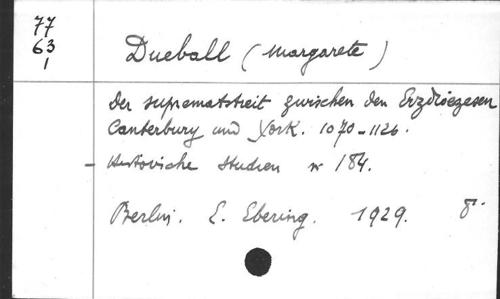 77
63
1
Dueball (Margarete)
Der suprematstreit zwischen den Erzdioezesen
Canterbury und York. 1070-1126.
- Historische Studien nr 184.
Berlin. E. Ebering. 1929. 8°.